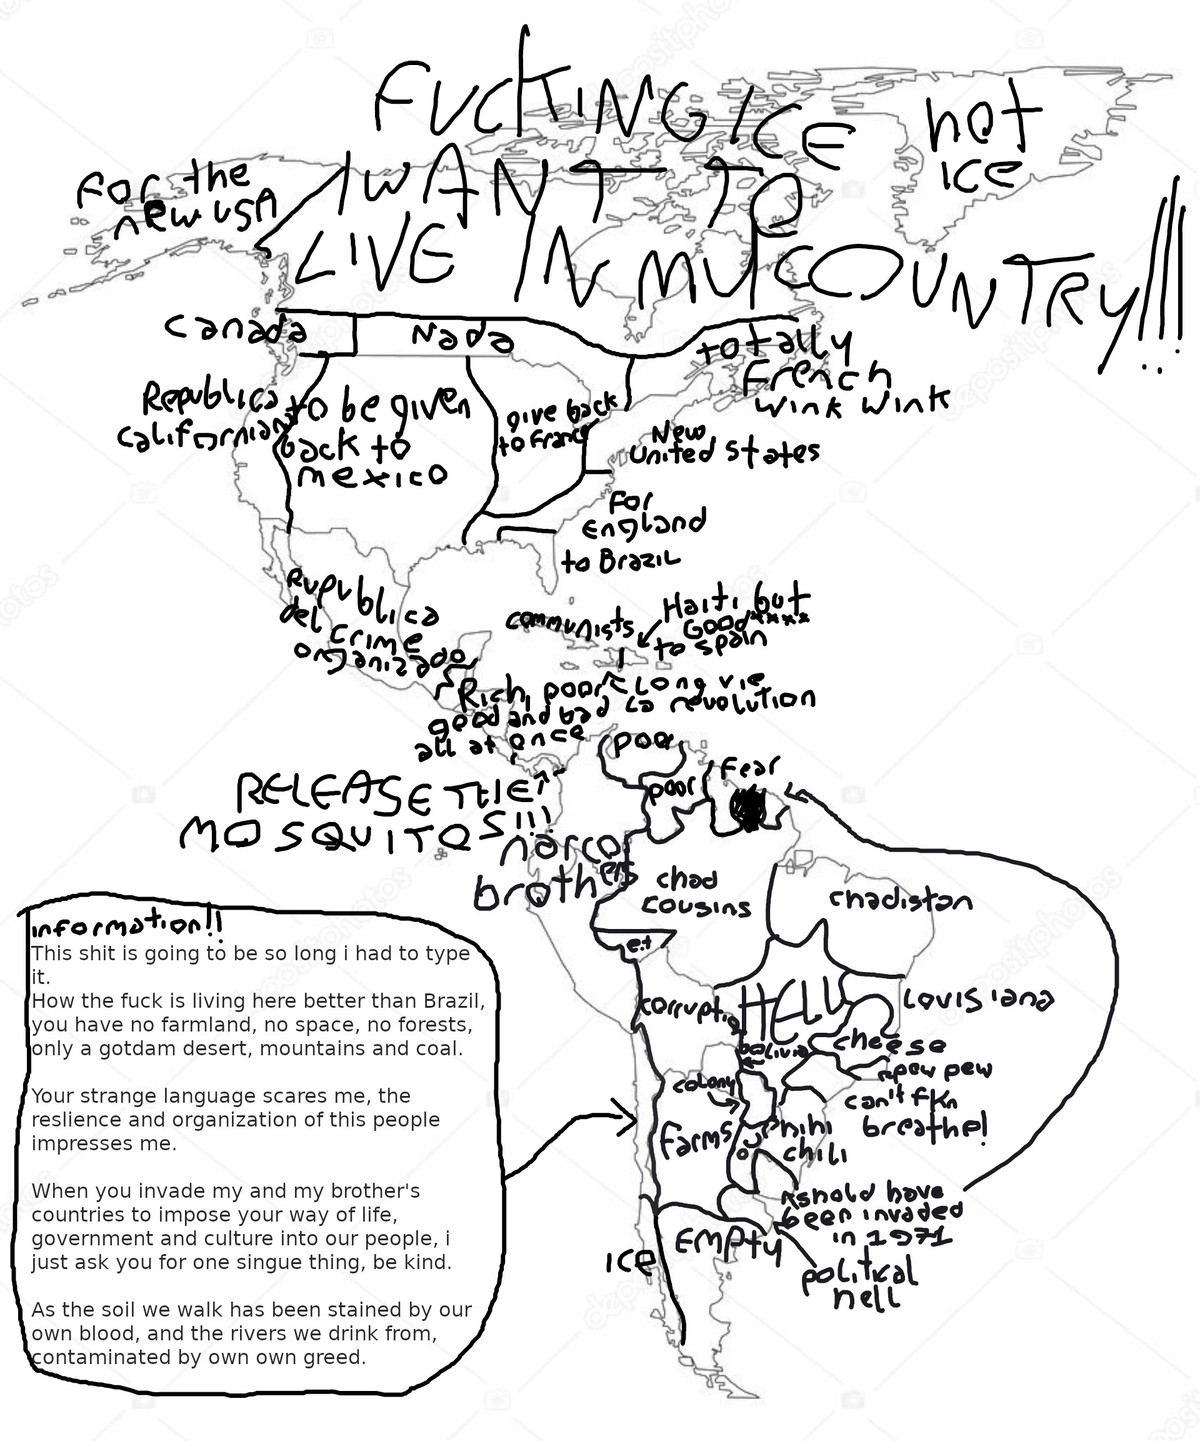 FUCKING ICE
I WANT TO
LIVE IN MY COUNTRY!!!
not
ICE
For the
new USA
Canada
Nada
totally
French
wink wink
Republica
californian
to be given
back to
mexico
give back
to France
New
United States
For
England
to Brazil
Rupublica
del crime
organizado
communists
Haiti but
Good****
to spain
Rich, poor
good and bad
all at once
Long vie
La revolution
RELEASE THE
MOSQUITOS!!!
poor
poor
Fear
narco
brothers
chad
cousins
chadistan
e.t
corruptio
HELL
Louisiana
balivia
cheese
pew pew
colony
can't fkn
breathe!
Farms
hihi
chili
shold have
been invaded
in 1971
EMPTY
ICE
political
hell
information!!
This shit is going to be so long i had to type
it.
How the fuck is living here better than Brazil,
you have no farmland, no space, no forests,
only a gotdam desert, mountains and coal.
Your strange language scares me, the
reslience and organization of this people
impresses me.
When you invade my and my brother's
countries to impose your way of life,
government and culture into our people, i
just ask you for one singue thing, be kind.
As the soil we walk has been stained by our
own blood, and the rivers we drink from,
contaminated by own own greed.
depositphotos